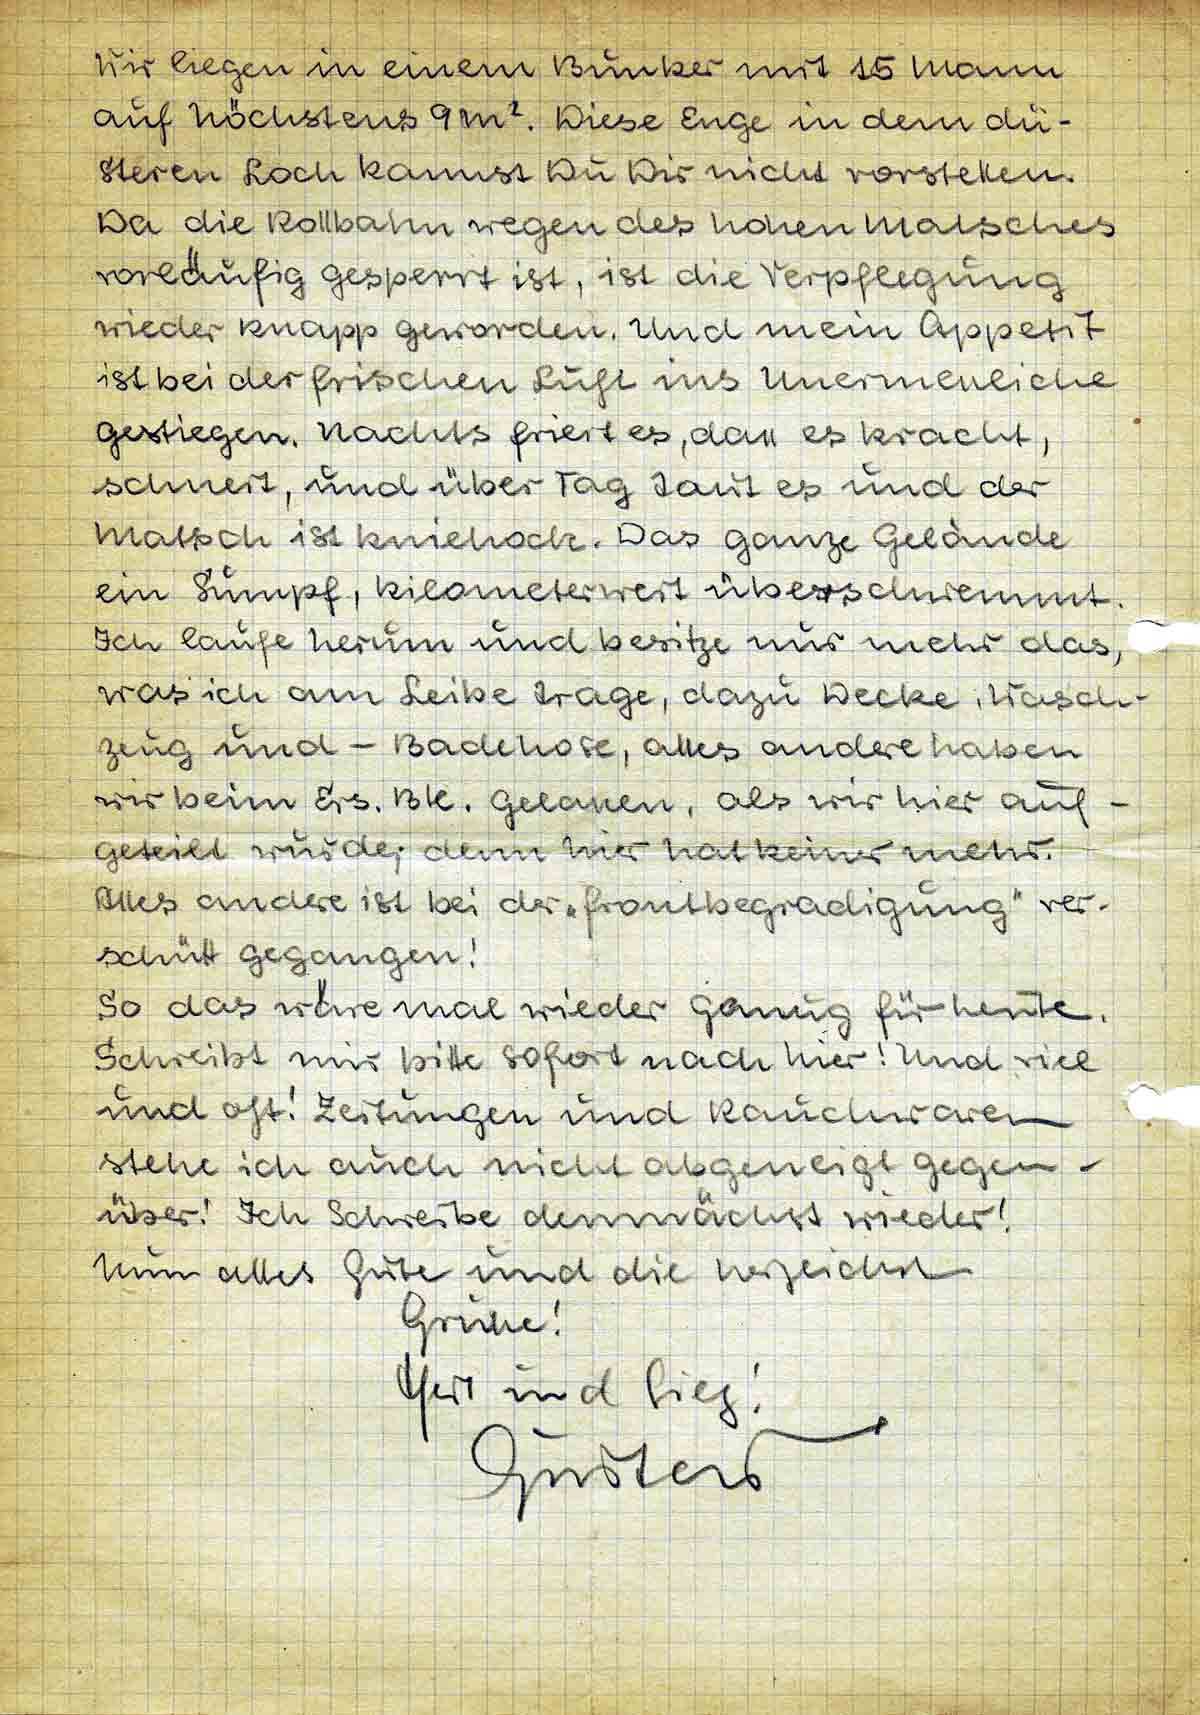 Wir liegen in einem Bunker mit 15 Mann
auf höchstens 9 m². Diese Enge in dem dü-
steren Loch kannst Du Dir nicht vorstellen.
Da die Rollbahn wegen des hohen Matsches
vorläufig gesperrt ist, ist die Verpflegung
wieder knapp geworden. Und mein Appetit
ist bei der frischen Luft ins Unermeßliche
gestiegen. Nachts friert es, daß es kracht,
schneit, und über Tag taut es und der
Matsch ist kniehoch. Das ganze Gelände
ein Sumpf, kilometerweit überschwemmt.
Ich laufe herum und besitze nur mehr das,
was ich am Leibe trage, dazu Decke, Wasch-
zeug und – Badehose, alles andere haben
wir beim Ers. Btl. gelassen, als wir hier auf-
geteilt wurde; denn hier hat keiner mehr.
Alles andere ist bei der „Frontbegradigung" ver-
schütt gegangen!
So das wäre mal wieder genug für heute.
Schreibt mir bitte sofort nach hier! Und viel
und oft! Zeitungen und Rauchwaren
stehe ich auch nicht abgeneigt gegen-
über! Ich Schreibe demnächst wieder!
Nun alles Gute und die herzlichst
Grüße!
Heil und Sieg!